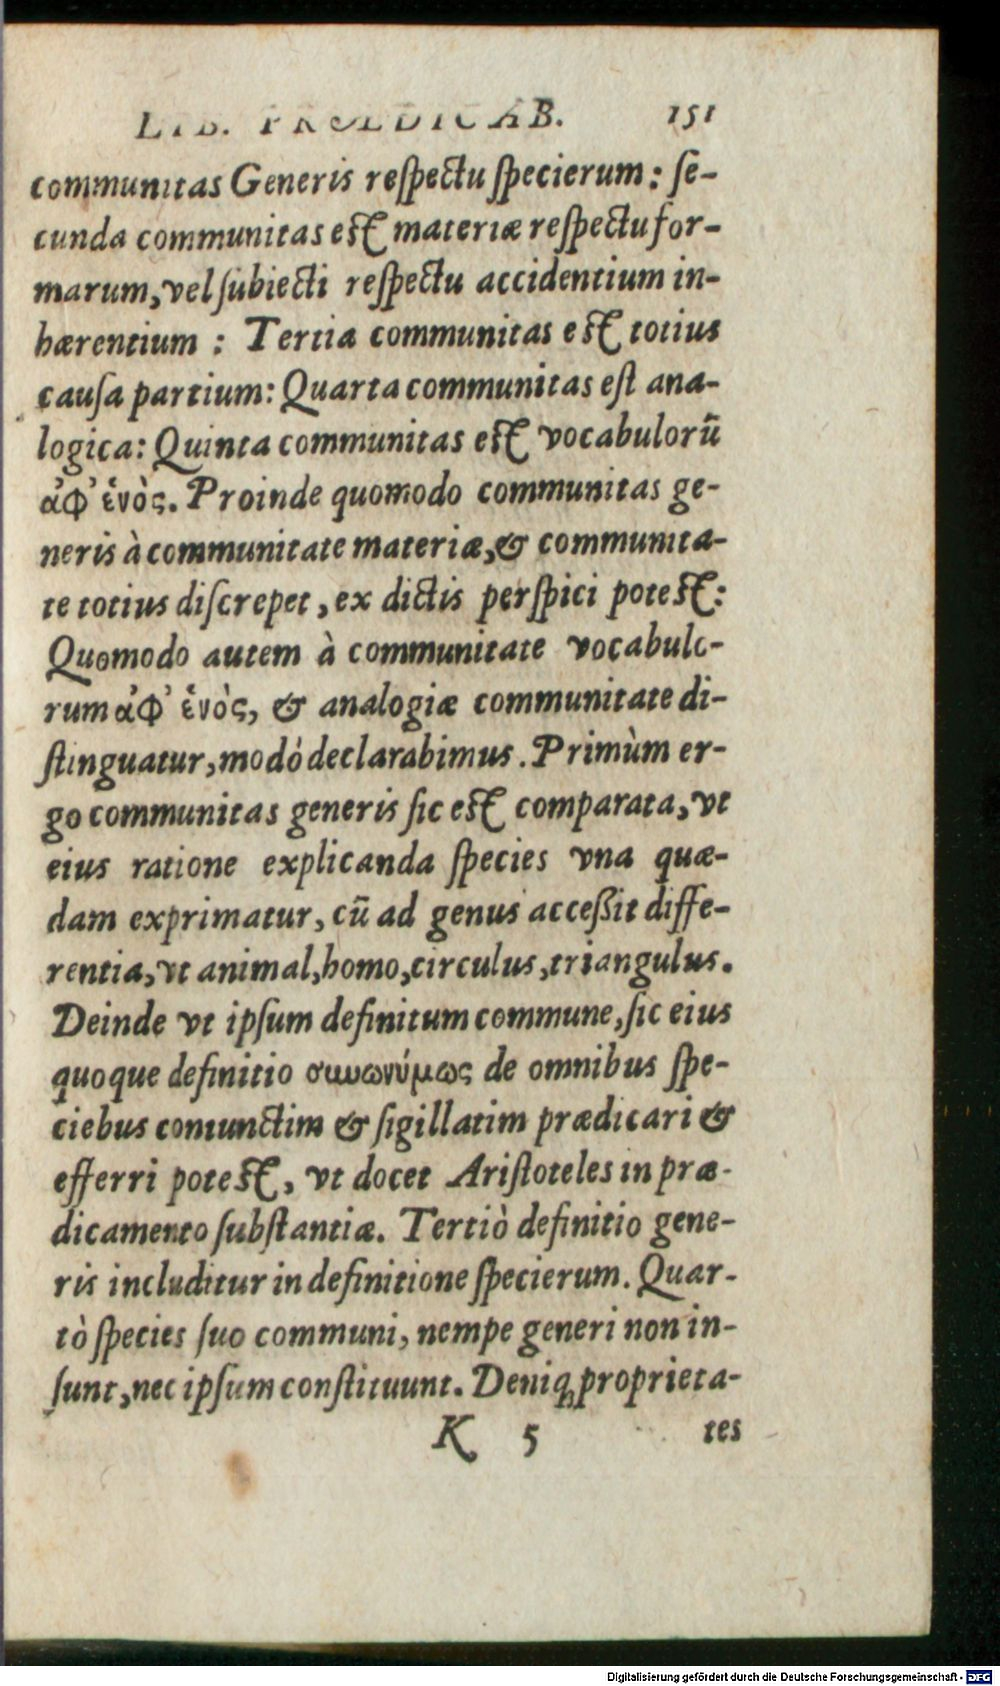 LIB. PROEDICAB. 151
communitas Generis respectu specierum: se-
cunda communitas est materiæ respectu for-
marum, vel subiecti respectu accidentium in-
hærentium : Tertia communitas est totius
causa partium: Quarta communitas est ana-
logica: Quinta communitas est vocabulorũ
ἀφ᾽ ἑνὸς. Proinde quomodo communitas ge-
neris à communitate materiæ, & communita-
te totius discrepet, ex dictis perspici potest:
Quomodo autem à communitate vocabulo-
rum ἀφ᾽ ἑνὸς, & analogiæ communitate di-
stinguatur, modò declarabimus. Primùm er-
go communitas generis sic est comparata, vt
eius ratione explicanda species vna quæ-
dam exprimatur, cũ ad genus accessit diffe-
rentia, vt animal, homo, circulus, triangulus.
Deinde vt ipsum definitum commune, sic eius
quoque definitio συνωνύμως de omnibus spe-
ciebus coniunctim & sigillatim prædicari &
efferri potest, vt docet Aristoteles in præ-
dicamento substantiæ. Tertiò definitio gene-
ris includitur in definitione specierum. Quar-
tò species suo communi, nempe generi non in-
sunt, nec ipsum constituunt. Deniq; proprieta-
K 5 tes
Digitalisierung gefördert durch die Deutsche Forschungsgemeinschaft - DFG